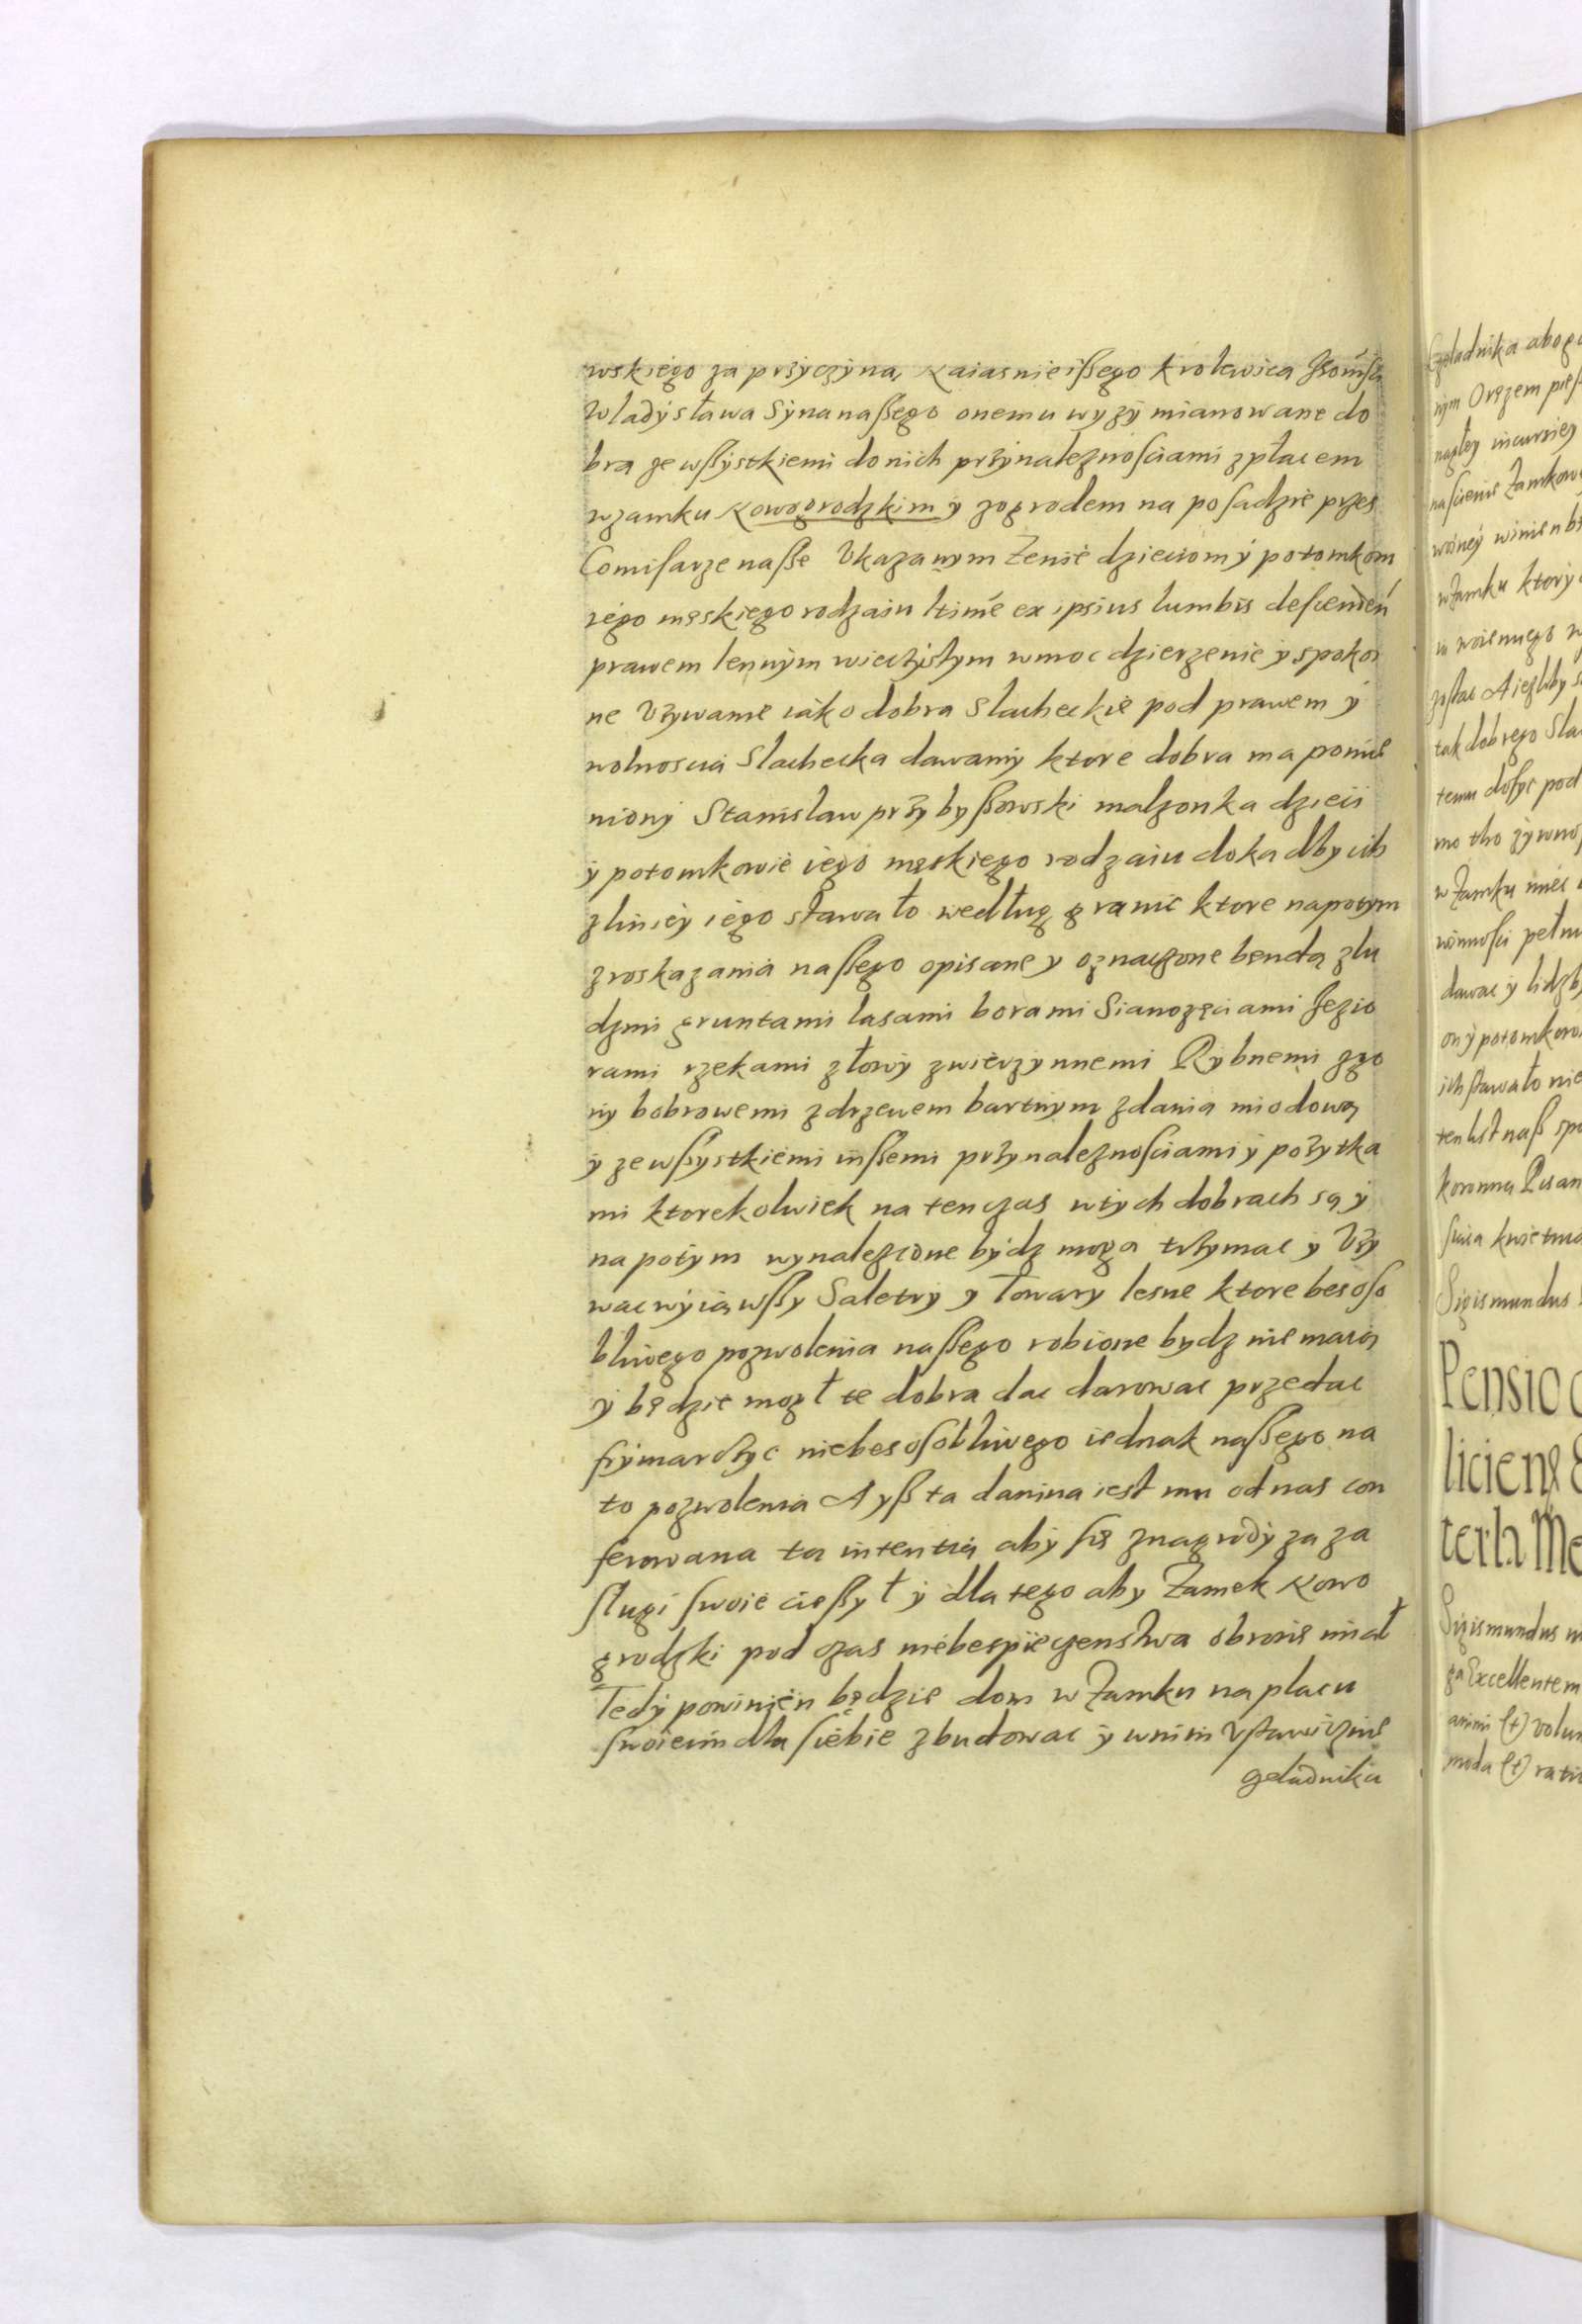 wskiego za przyczyną Naiasnieißego krolewica Jeomſci
Wladysława Syna naßego onemu wyzy mianowane do
bra ze wßystkiemi do nich przynaleznoſciami z płacem
w zamku Nowogrodzkim y z ogrodem na poſadzie przes
Comiſarze naße Vkazanym Zenie dzieciom y potomkom
iego męskiego rodzaiu ltimé ex ipsius lumbis deſcendeń
prawem lennym wieczystym w moc dzierzenie y spokoi
ne Vzywanie iako dobra Slacheckie pod prawem y
wolnoscia Slachecka dawamy ktore dobra ma pomie
niony Stanislaw przybyßowski malzonka dzieci
y potomkowie iego męskiego rodzaiu doka dby ich
z liniey iego stawało według granic ktore napotym
z roskazania naßego opisane y oznaczone bęndą z lu
dzmi gruntami lasami borami Sianozęciami Jezio
rami rzekami z łowy zwierzynnemi Rybnemi z go
ny bobrowemi z drzewem bartnym z dania miodową
y ze wßystkiemi inßemi przynaleznoſciami y pozytka
mi ktorekolwiek na ten czas w tych dobrach są y
na potym wynalezione bydz moga trzymac y Vzy
wac wyiąwßy Saletry y Towary lesne ktore bes oſo
bliwego pozwolenia naßego robione bydz nie maią
y będzie mogł te dobra dac darowac przedac
frymarczyc nie bes oſobliwego iednak naßego na
to pozwolenia A yß ta danina iest mu od nas con
ferowana ta intentią aby ſię z nagrody za za
ſlugi ſwoie cießył y dla tego aby Zamek Nowo
grodzki pod czas niebespieczenstwa obronę miał
Tedy powinien będzie dom w Zamku na placu
ſwoiem dla ſiebie zbudowac y w nim Vſtawicznie
czeladnika
Czeladnika abo go
nym Oręzem pieſ
nagłey incursiey
na ſcienie Zamkow
woiney winien b
w Zamku ktory
w woiennego
zostac A iezliby
tak dobrego Sla
temu doſyc pod
mo tho zywno
w Zamku miec
winnoſci pełni
dawac y lidzb
on y potomkow
ich stawało nie
ten list naß spo
koronna Pisan
ſiąca kwietnia
Sigismundus
Pensio
licien
terh Me
Sigismundus
ga Excellentem
animi (et) volun
moda (et) ratio